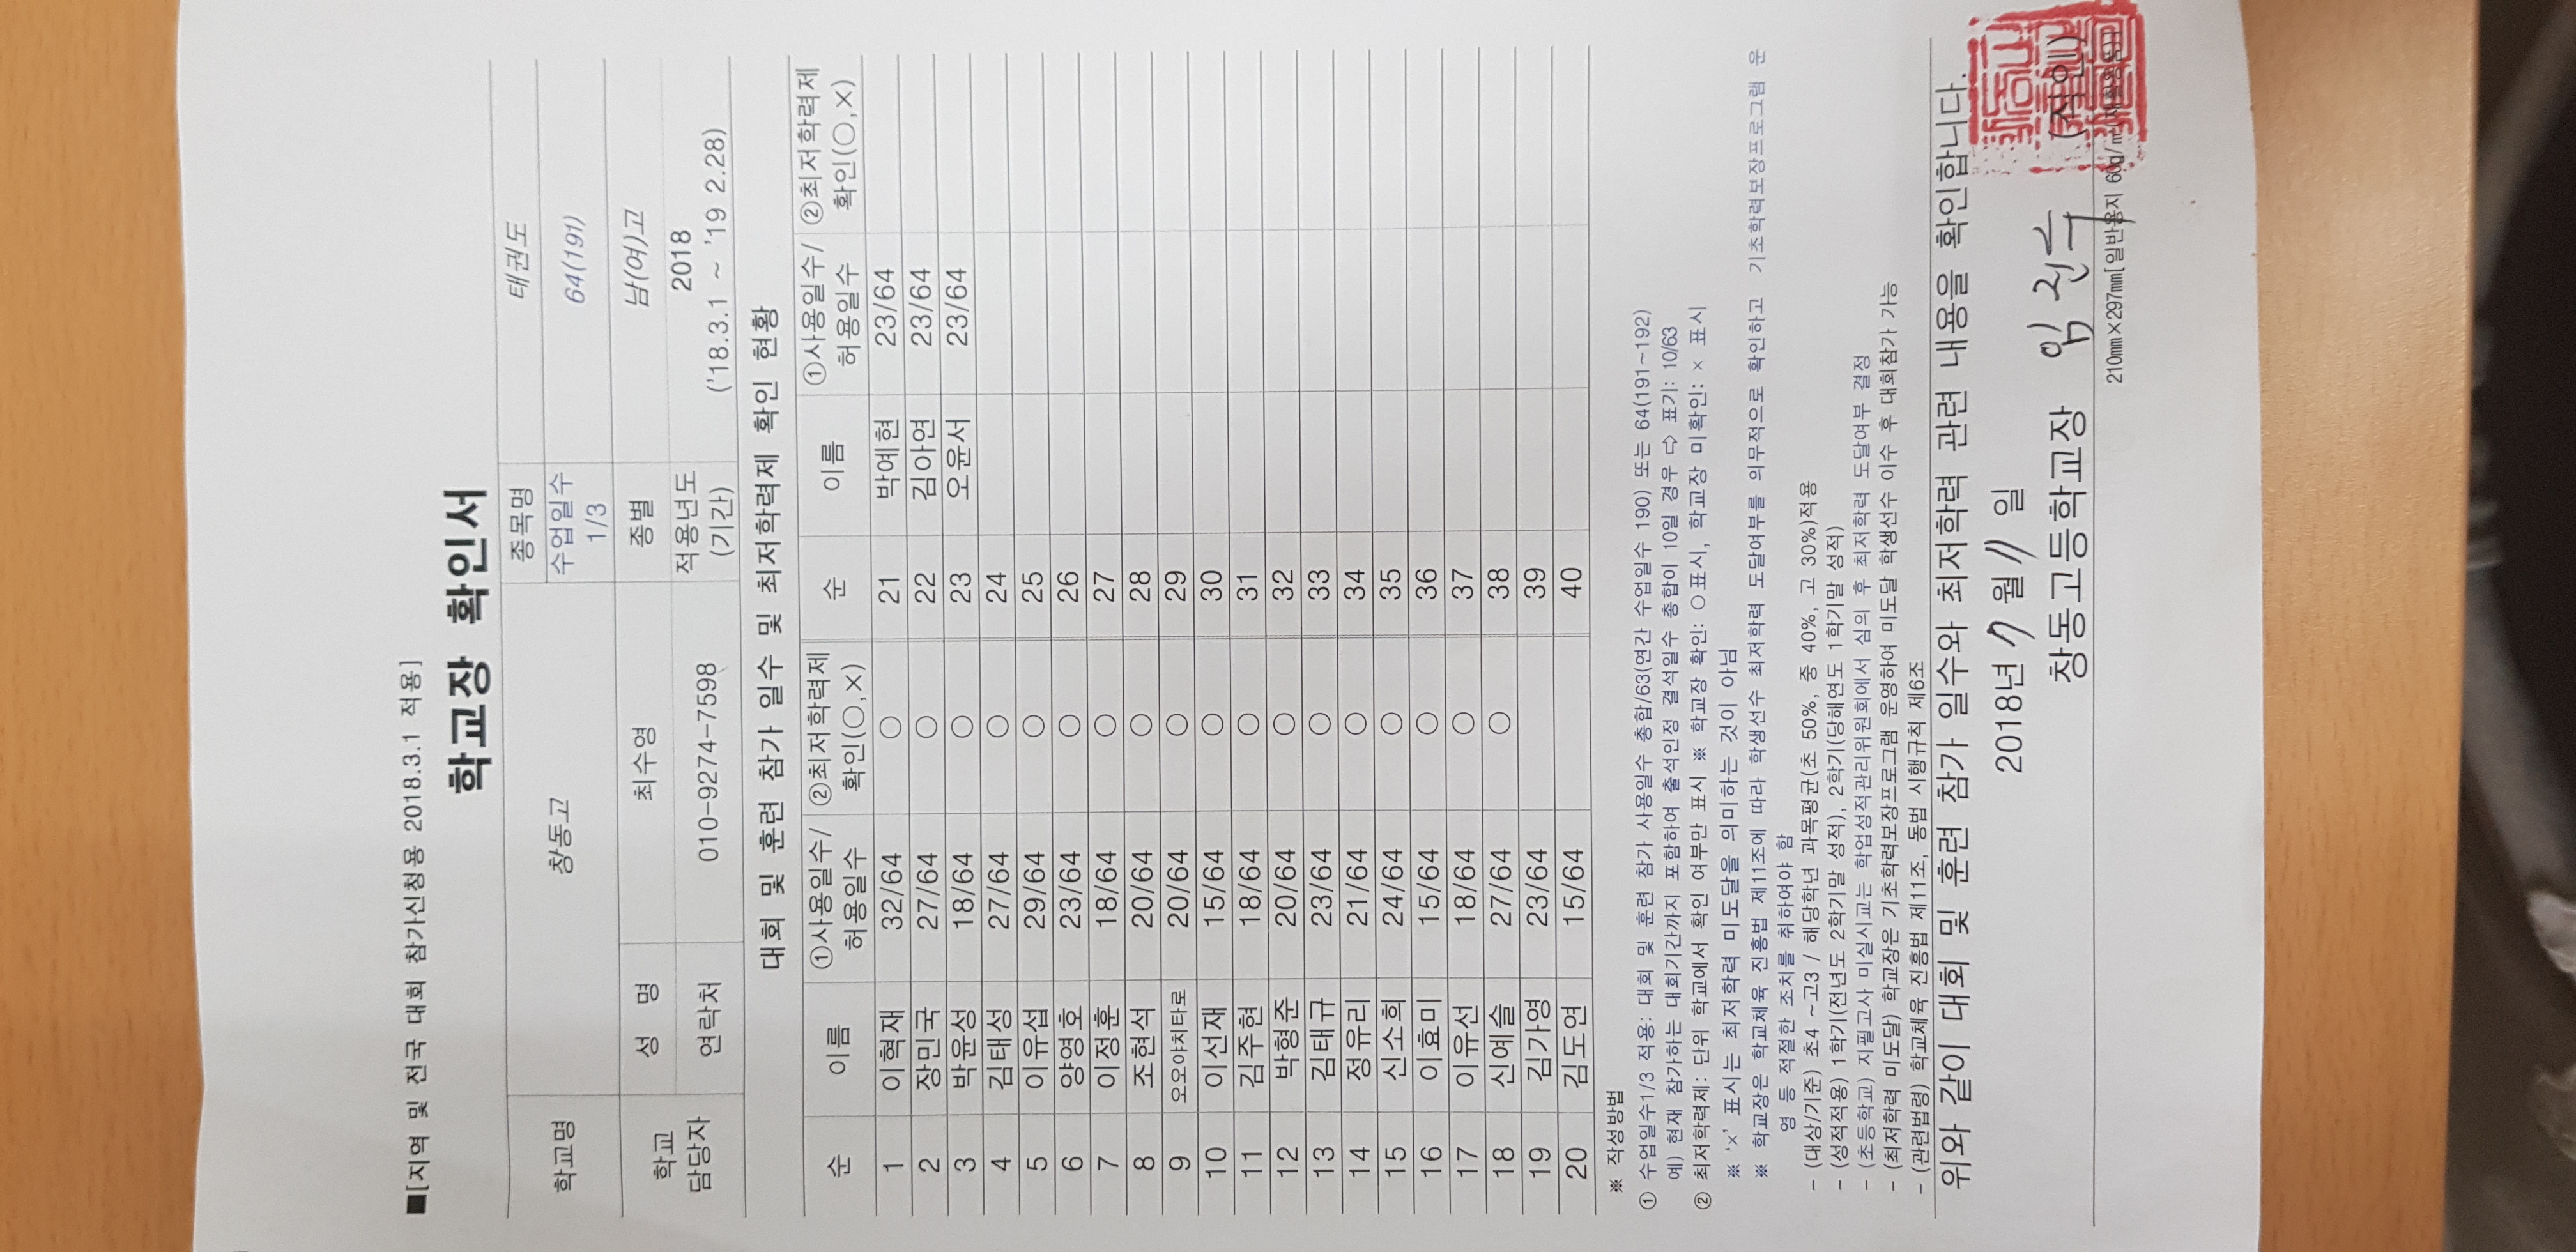 ■[지역 및 전국 대회 참가신청용 2018.3.1 적용]
학교장 확인서
학교명 창동고 종목명 태권도
수업일수 1/3 64(191)
학교 담당자 성 명 최수영 종별 남(여)고
연락처 010-9274-7598 적용년도 (기간) 2018 ('18.3.1 ~ '19 2.28)
대회 및 훈련 참가 일수 및 최저학력제 확인 현황
순 이름 ①사용일수/허용일수 ②최저학력제 확인(○,×) 순 이름 ①사용일수/허용일수 ②최저학력제 확인(○,×)
1 이혁재 32/64 ○ 21 박예현 23/64
2 장민국 27/64 ○ 22 김아연 23/64
3 박윤성 18/64 ○ 23 오윤서 23/64
4 김태성 27/64 ○ 24
5 이유섭 29/64 ○ 25
6 양영호 23/64 ○ 26
7 이정훈 18/64 ○ 27
8 조현석 20/64 ○ 28
9 오오야치타로 20/64 ○ 29
10 이선재 15/64 ○ 30
11 김주현 18/64 ○ 31
12 박형준 20/64 ○ 32
13 김태규 23/64 ○ 33
14 정유리 21/64 ○ 34
15 신소희 24/64 ○ 35
16 이효미 15/64 ○ 36
17 이유선 18/64 ○ 37
18 신예슬 27/64 ○ 38
19 김가영 23/64 39
20 김도연 15/64 40
※ 작성방법
① 수업일수1/3 적용: 대회 및 훈련 참가 사용일수 총합/63(연간 수업일수 190) 또는 64(191~192)
예) 현재 참가하는 대회기간까지 포함하여 출석인정 결석일수 총합이 10일 경우 ⇨ 표기: 10/63
② 최저학력제: 단위 학교에서 확인 여부만 표시 ※ 학교장 확인: ○표시, 학교장 미확인: × 표시
※ '×' 표시는 최저학력 미도달을 의미하는 것이 아님
※ 학교장은 학교체육 진흥법 제11조에 따라 학생선수 최저학력 도달여부를 의무적으로 확인하고 기초학력보장프로그램 운
영 등 적절한 조치를 취하여야 함
- (대상/기준) 초4 ~고3 / 해당학년 과목평균(초 50%, 중 40%, 고 30%)적용
- (성적적용) 1학기(전년도 2학기말 성적), 2학기(당해연도 1학기말 성적)
- (초등학교) 지필고사 미실시교는 학업성적관리위원회에서 심의 후 최저학력 도달여부 결정
- (최저학력 미도달) 학교장은 기초학력보장프로그램 운영하여 미도달 학생선수 이수 후 대회참가 가능
- (관련법령) 학교체육 진흥법 제11조, 동법 시행규칙 제6조
위와 같이 대회 및 훈련 참가 일수와 최저학력 관련 내용을 확인합니다.
2018년 7월 11일
창동고등학교장 임 (직인)
210mm×297mm[일반용지 60g/㎡